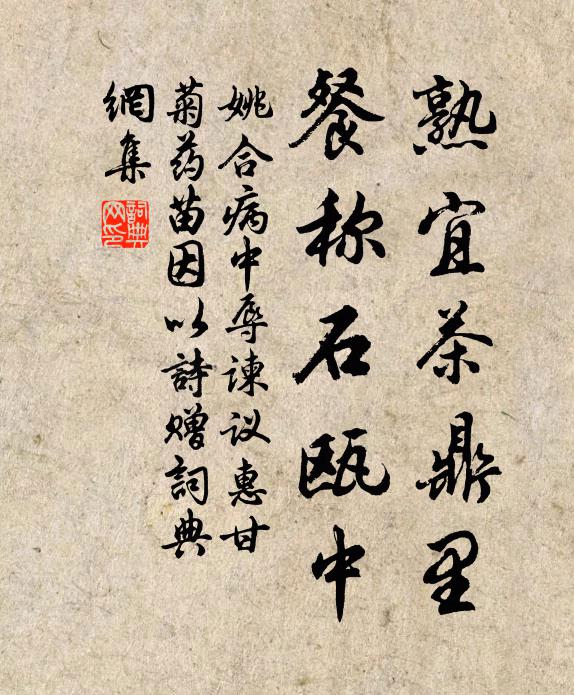 熟宜茶鼎里
餐称石瓯中
姚合病中辱谏议惠甘
菊药苗因以詩赠詞典
網集
詞典
网印